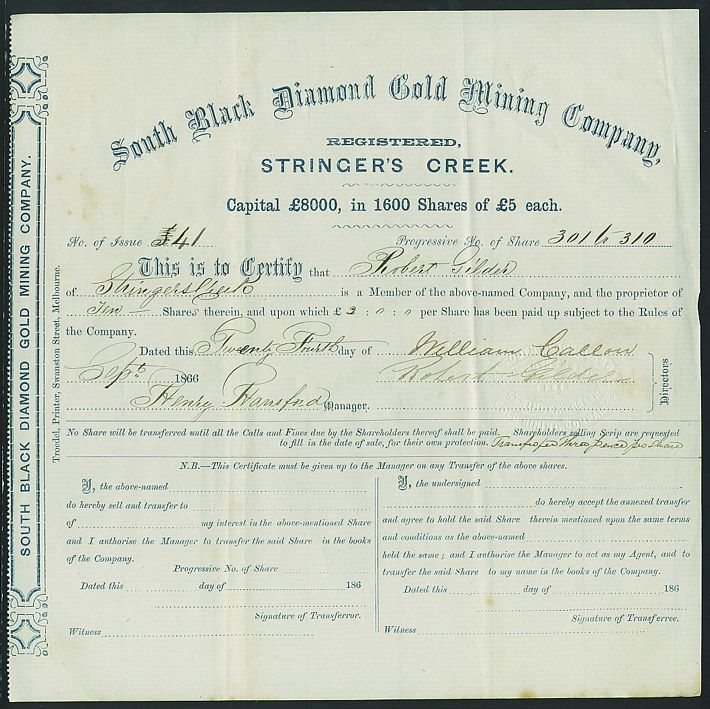 South Black Diamond Gold Mining Company,
REGISTERED,
STRINGER'S CREEK.
Capital £8000, in 1600 Shares of £5 each.
No. of Issue 41 Progressive No. of Share 301 to 310
This is to Certify that Robert Gilder
of Stringers Creek is a Member of the above-named Company, and the proprietor of
Ten Shares therein, and upon which £ 2 : 0 : 0 per Share has been paid up subject to the Rules of
the Company.
Dated this Twenty Fourth day of William Callow
Sept. 1866 Robert Gilder
Henry Hansford Manager.
Directors
No Share will be transferred until all the Calls and Fines due by the Shareholders thereof shall be paid. Shareholders selling Scrip are requested
to fill in the date of sale, for their own protection. Transfer fee three pence per Share
N.B.—This Certificate must be given up to the Manager on any Transfer of the above shares.
I, the above-named
do hereby sell and transfer to
of my interest in the above-mentioned Share
and I authorise the Manager to transfer the said Share in the books
of the Company.
Progressive No. of Share
Dated this day of 186
Signature of Transferror.
Witness
I, the undersigned
do hereby accept the annexed transfer
and agree to hold the said Share therein mentioned upon the same terms
and conditions as the above-named
held the same; and I authorise the Manager to act as my Agent, and to
transfer the said Share to my name in the books of the Company.
Dated this day of 186
Signature of Transferree.
Witness
SOUTH BLACK DIAMOND GOLD MINING COMPANY.
Troedel, Printer, Swanston Street, Melbourne.